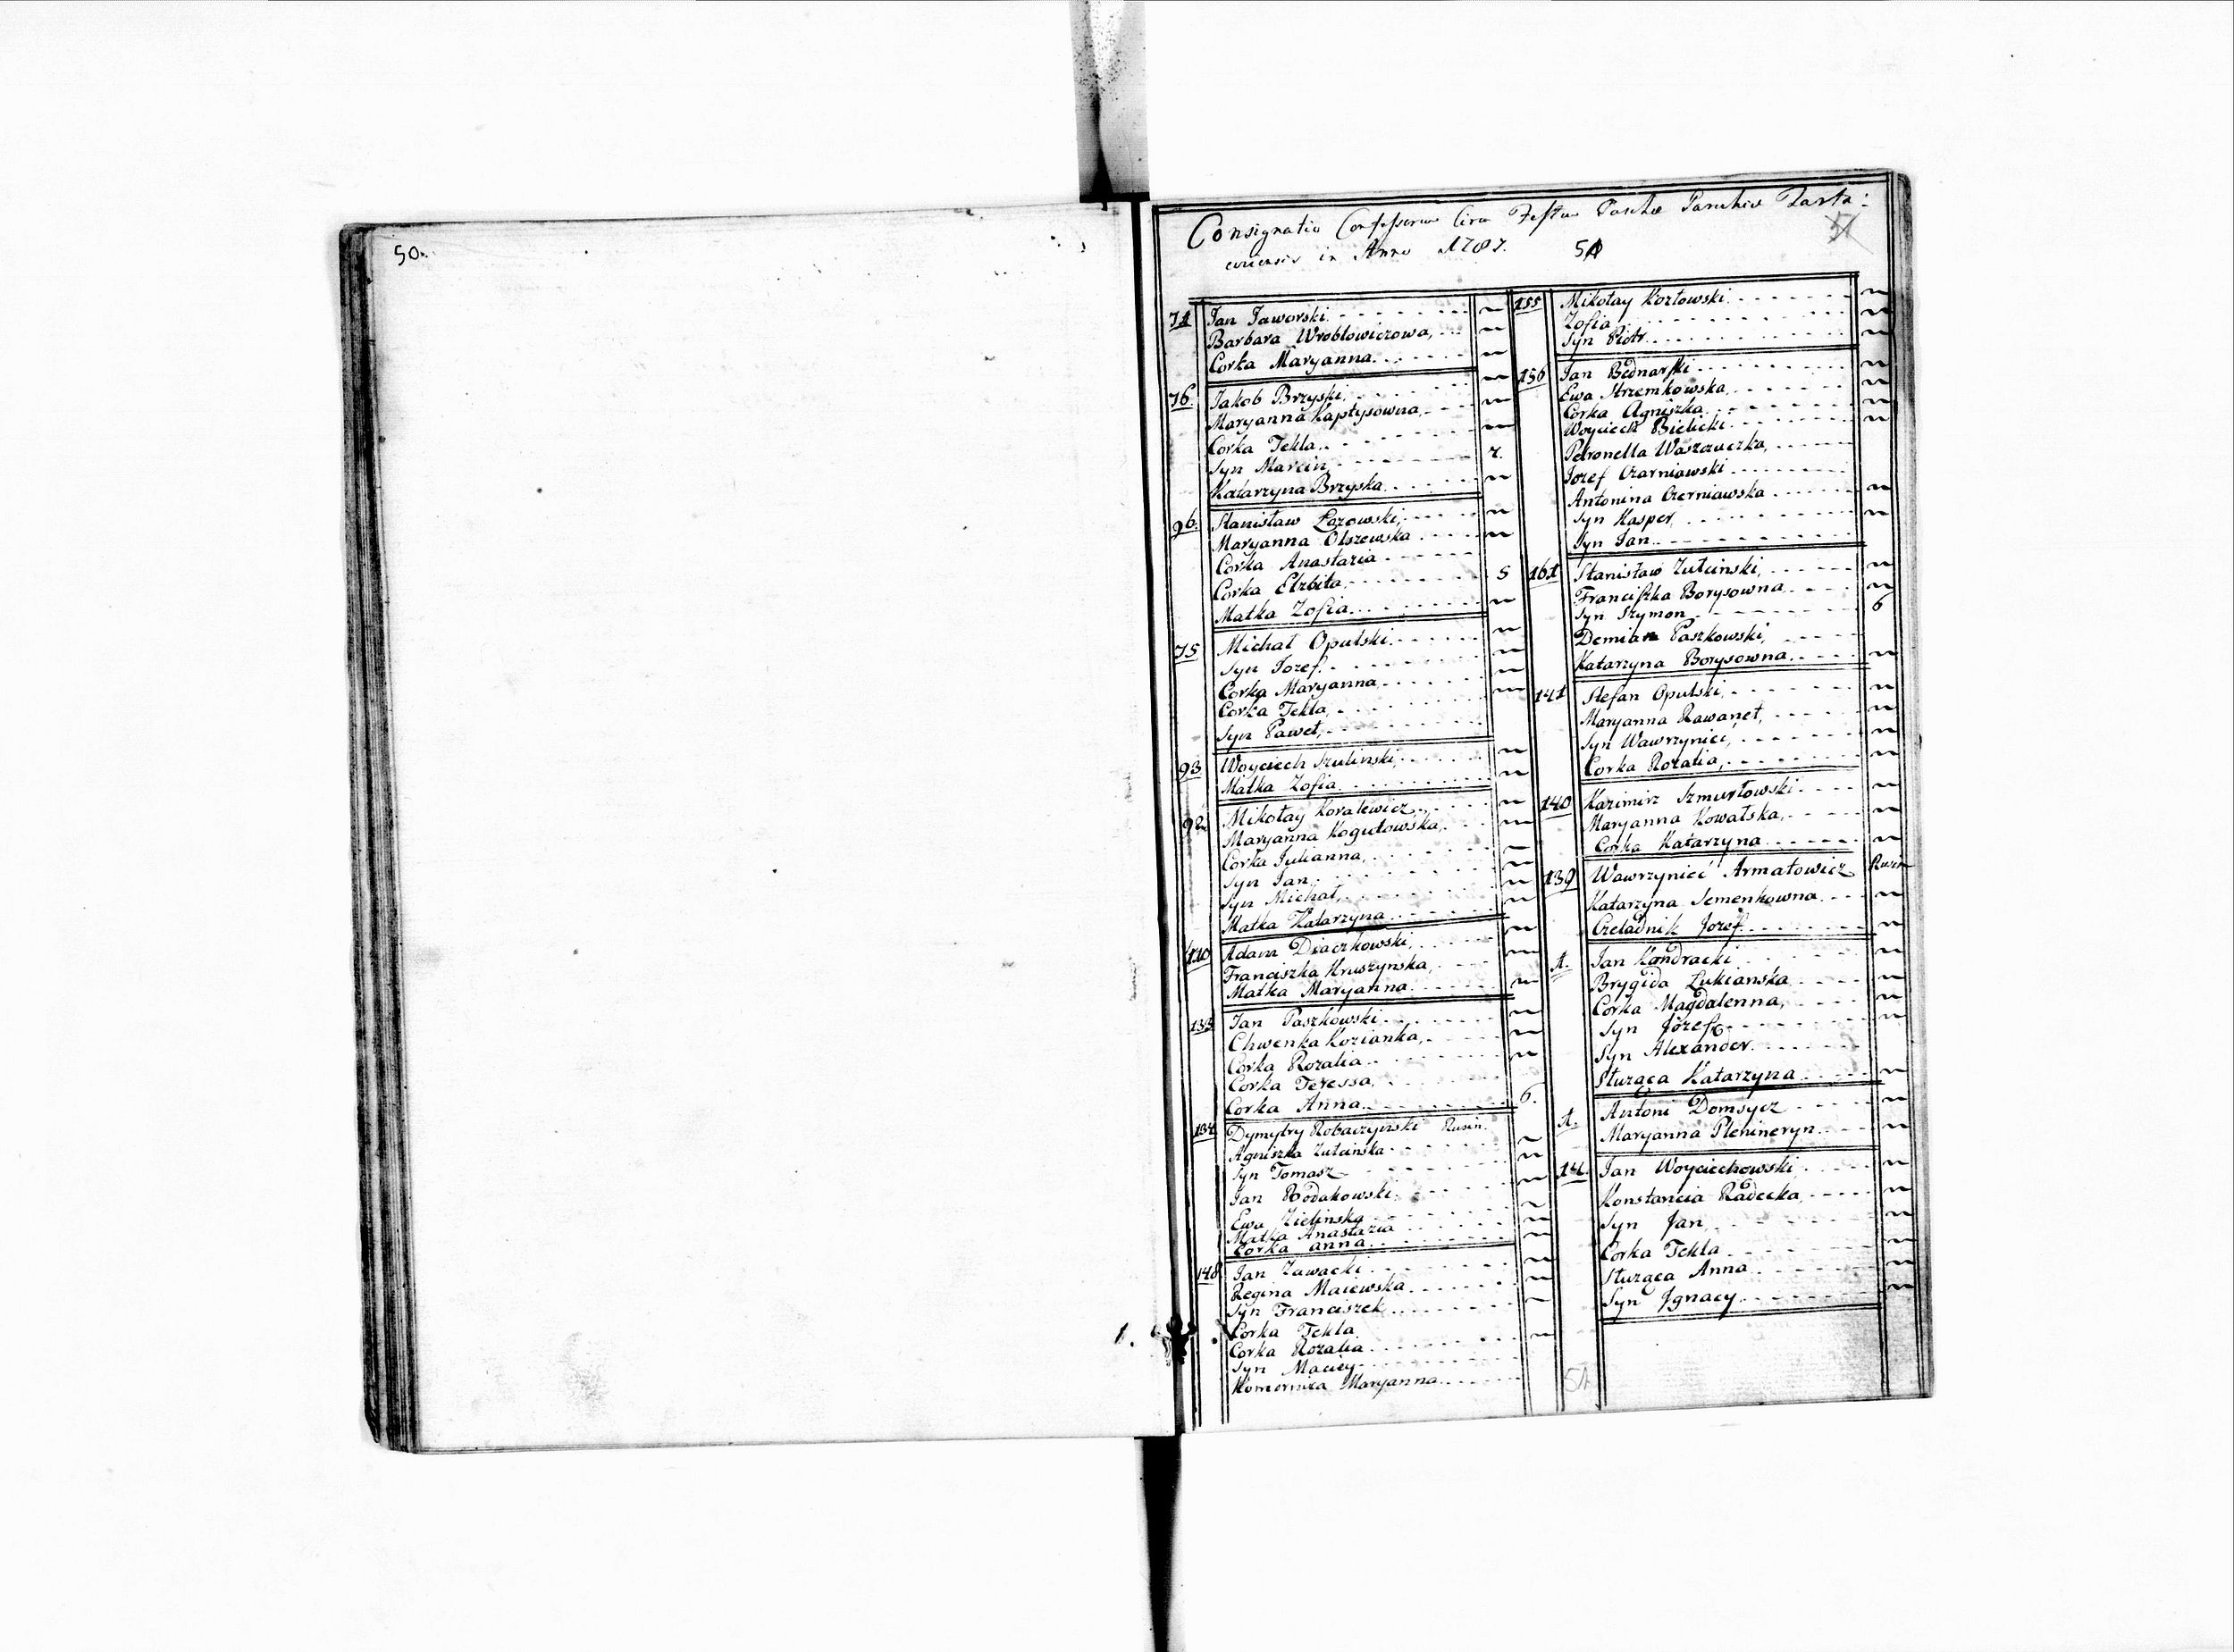 50.
Consignatio Confessorum Circa Festum Paschae Parochiae Tarta:
coviensis in Anno 1787. 51
71 Jan Jaworski
Barbara Wroblowiczowa,
Corka Maryanna
76. Jakob Brzyski,
Maryanna Kaptysowna,
Corka Tekla
Syn Marcin 7.
Katarzyna Brzyska
96. Stanisław Łozowski,
Maryanna Olszewska
Corka Anastazia
Corka Elzbita, 5
Matka Zofia
75 Michał Opulski
Syn Jozef
Corka Maryanna
Corka Tekla,
Syn Paweł,
93 Woyciech Szulinski,
Matka Zofia
92 Mikołay Koralewicz,
Maryanna Kogutowska,
Corka Julianna,
Syn Jan
Syn Michał,
Matka Katarzyna
110 Adam Draczkowski,
Franciszka Kruszynska,
Matka Maryanna
133 Jan Paszkowski
Chwenka Kozianka,
Corka Rozalia
Corka Teressa,
Corka Anna 6.
134 Dymytry Robaczynski Rusin.
Agniszka Zutcinska
Syn Tomasz
Jan Rodakowski
Ewa Zielinska
Matka Anastazia
Corka anna
148 Jan Zawacki
Regina Maiewska
Syn Franciszek
Corka Tekla
Corka Rozalia
Syn Maciey
Komornica Maryanna
155 Mikołay Kozłowski
Zofia
Syn Piotr
156 Jan Bednarski
Ewa Strzemkowska,
Corka Agniszka
Woyciech Bielicki
Petronella Waszawczka,
Jozef Czarniawski
Antonina Czerniawska
Syn Kasper,
Syn Jan
161 Stanisław Zutcinski,
Franciszka Borysowna
Syn Szymon 6
Demian Paszkowski,
Katarzyna Borysowna
141 Stefan Opulski,
Maryanna Rawanet,
Syn Wawrzyniec,
Corka Rozalia,
140 Kazimirz Szmurłowski
Maryanna Kowalska,
Corka Katarzyna
139 Wawrzyniec Armatowicz Rusin
Katarzyna Semenkowna
Czeladnik Jozef
1. Jan Kondracki
Brygida Łukianska
Corka Magdalenna,
Syn Jozef
Syn Alexander
Słuząca Katarzyna
1. Antoni Domsycz
Maryanna Plenineryn
14. Jan Woyciechowski,
Konstancia Radecka,
Syn Jan,
Corka Tekla
Słuząca Anna
Syn Jgnacy
51
1.